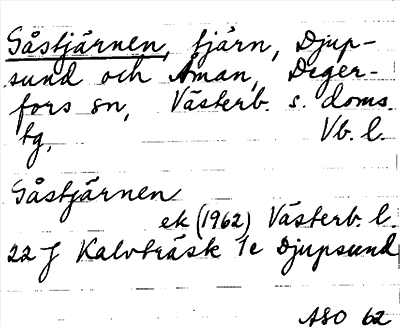 Gåstjärnen, tjärn, Djup-
sund och Åman, Deger-
fors sn, Västerb. s. doms.
tg, Vb. l.
Gåstjärnen
ek (1962) Västerb. l
22 J Kalvträsk 1e Djupsund
ASO 62